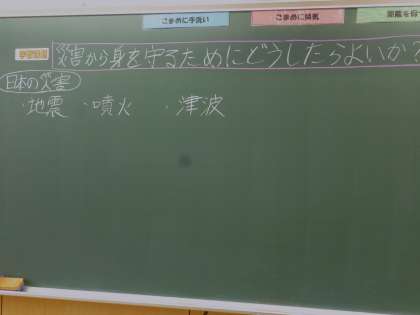 こまめに手洗い
こまめに換気
距離を
学習問題
災害から身を守るためにどうしたらよいか?
日本の災害
・地震 ・噴火 ・津波